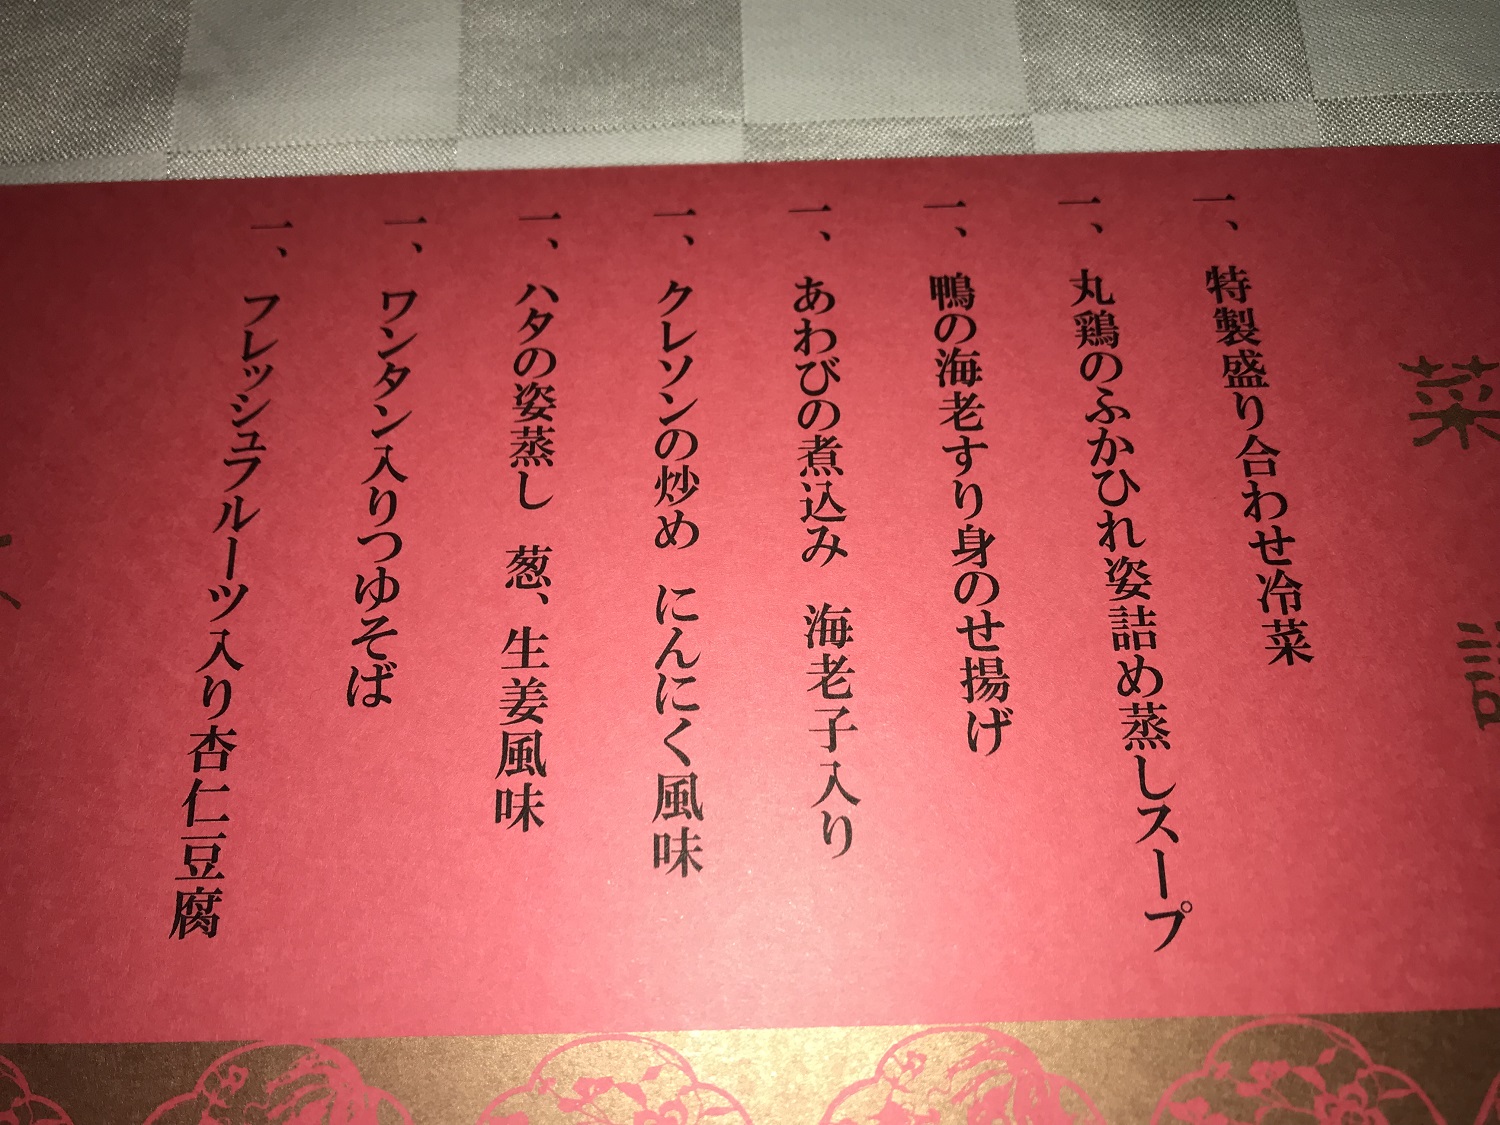 菜
一、特製盛り合わせ冷菜
一、丸鶏のふかひれ姿詰め蒸しスープ
一、鴨の海老すり身のせ揚げ
一、あわびの煮込み　海老子入り
一、クレソンの炒め　にんにく風味
一、ハタの姿蒸し　葱、生姜風味
一、ワンタン入りつゆそば
一、フレッシュフルーツ入り杏仁豆腐